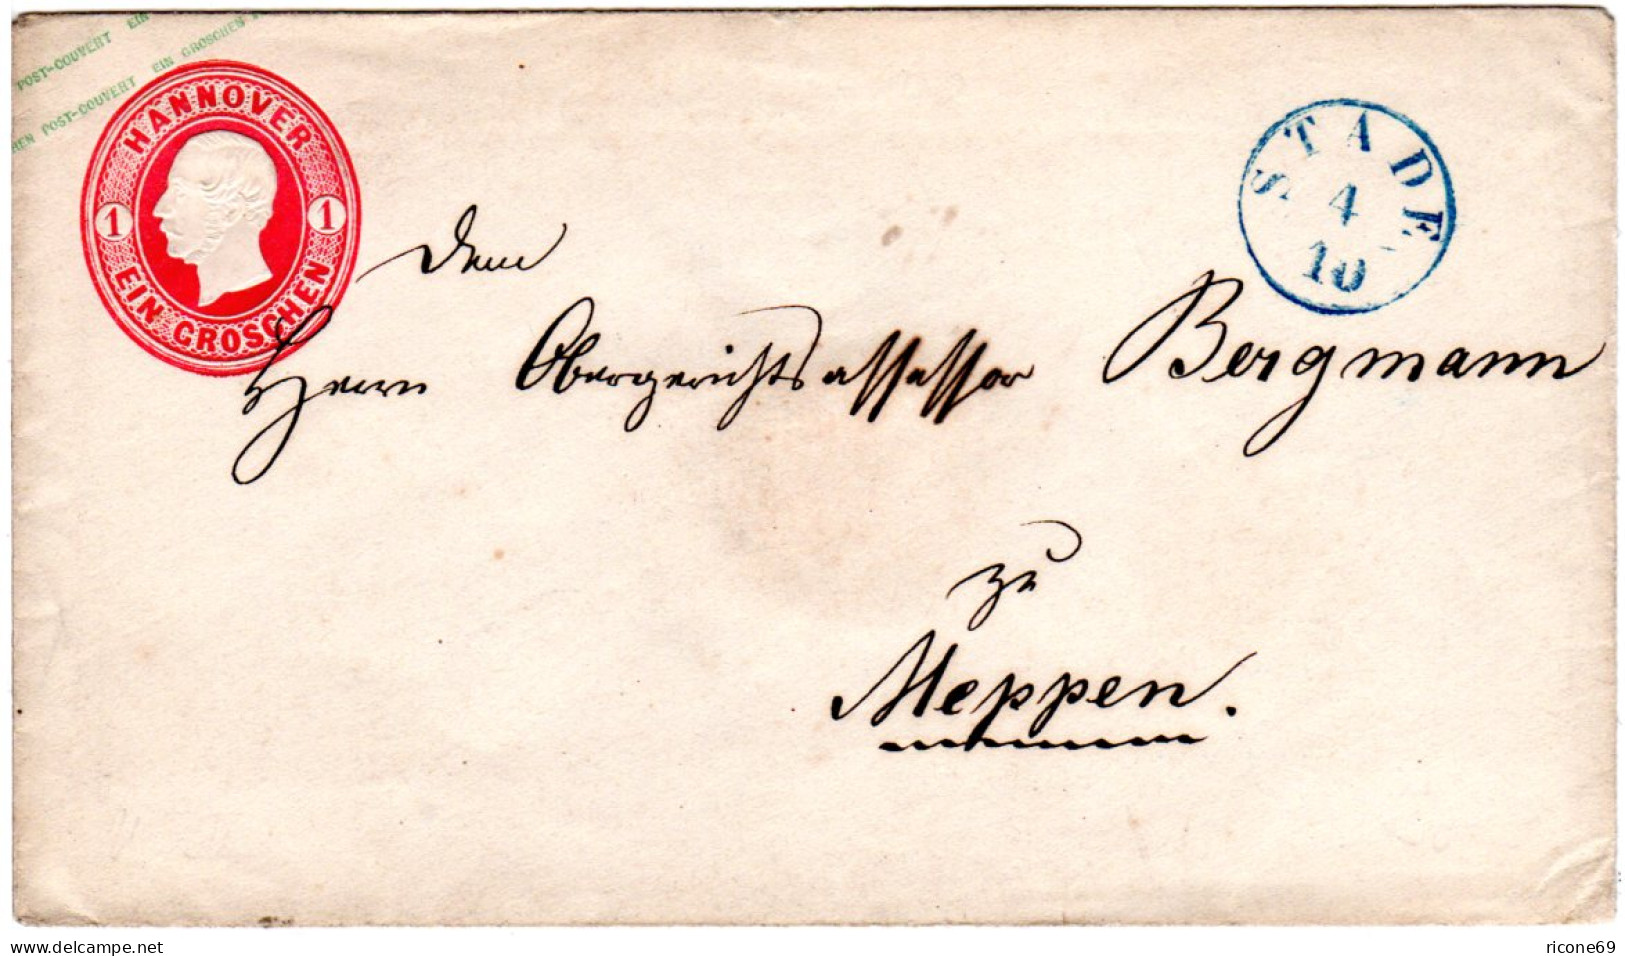 POST-COUVERT EIN
HEN POST-COUVERT EIN GROSCHEN
HANNOVER
1 1
EIN GROSCHEN
STADE
4
10
Dem
Herrn Obergerichtsassessor Bergmann
zu
Meppen.
www.delcampe.net
ricone69